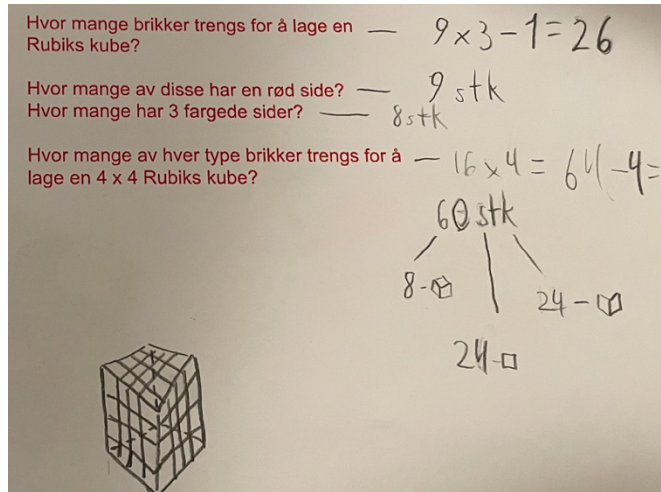 Hvor mange brikker trengs for å lage en — 9 x 3 - 1 = 26
Rubiks kube?
Hvor mange av disse har en rød side? — 9 stk
Hvor mange har 3 fargede sider? — 8 stk
Hvor mange av hver type brikker trengs for å — 16 x 4 = 64 - 4 =
lage en 4 x 4 Rubiks kube?
60 stk
8 -
24 -
24 -